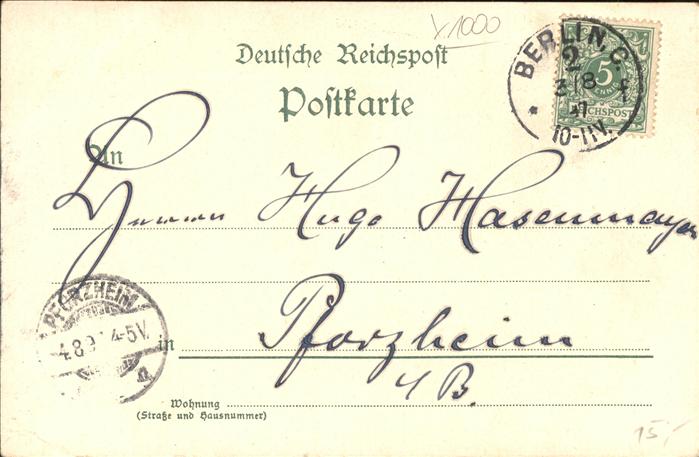 V1000
Deutsche Reichspost
Postkarte
BERLIN, C.
2
5
3/8
10-11V.
REICHSPOST
An
Herrn Hugo Hasenmayer
PFORZHEIM
4-5V.
in Pforzheim
Wohnung
(Straße und Hausnummer)
15,-